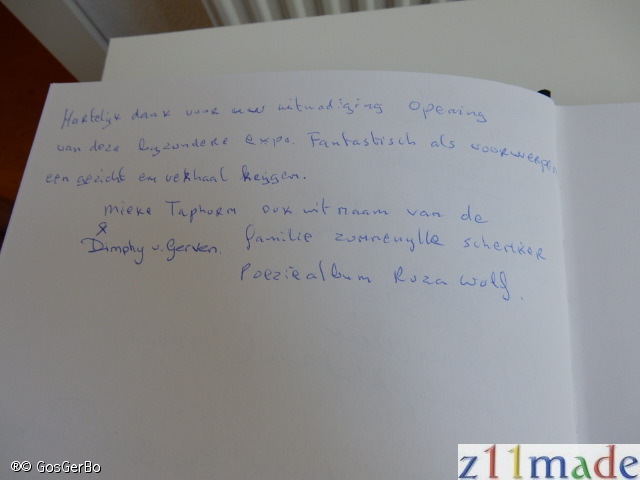 Hartelijk dank voor uw uitnodiging opening
van deze bijzondere expo. Fantastisch als voorwerpen
een gezicht en verhaal krijgen.
Mieke Taphorn ook uit naam van de
&
Dimphy v. Gerven. familie schenker
Poeziealbum Roza Wolf.
®© GosGerBo
z11made